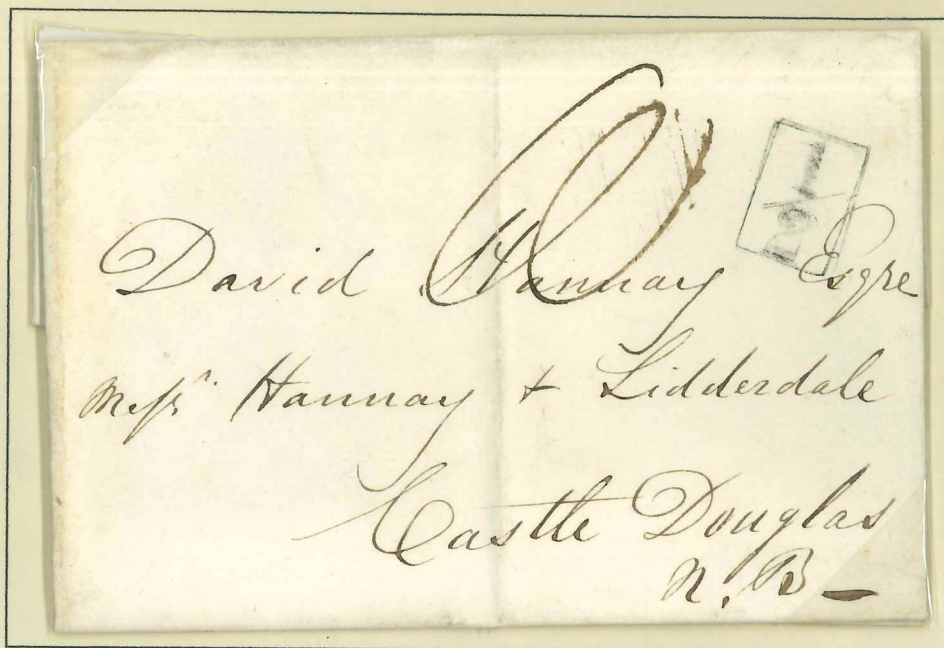 David Hannay Esqre
Messrs Hannay + Lidderdale
Castle Douglas
N. B —